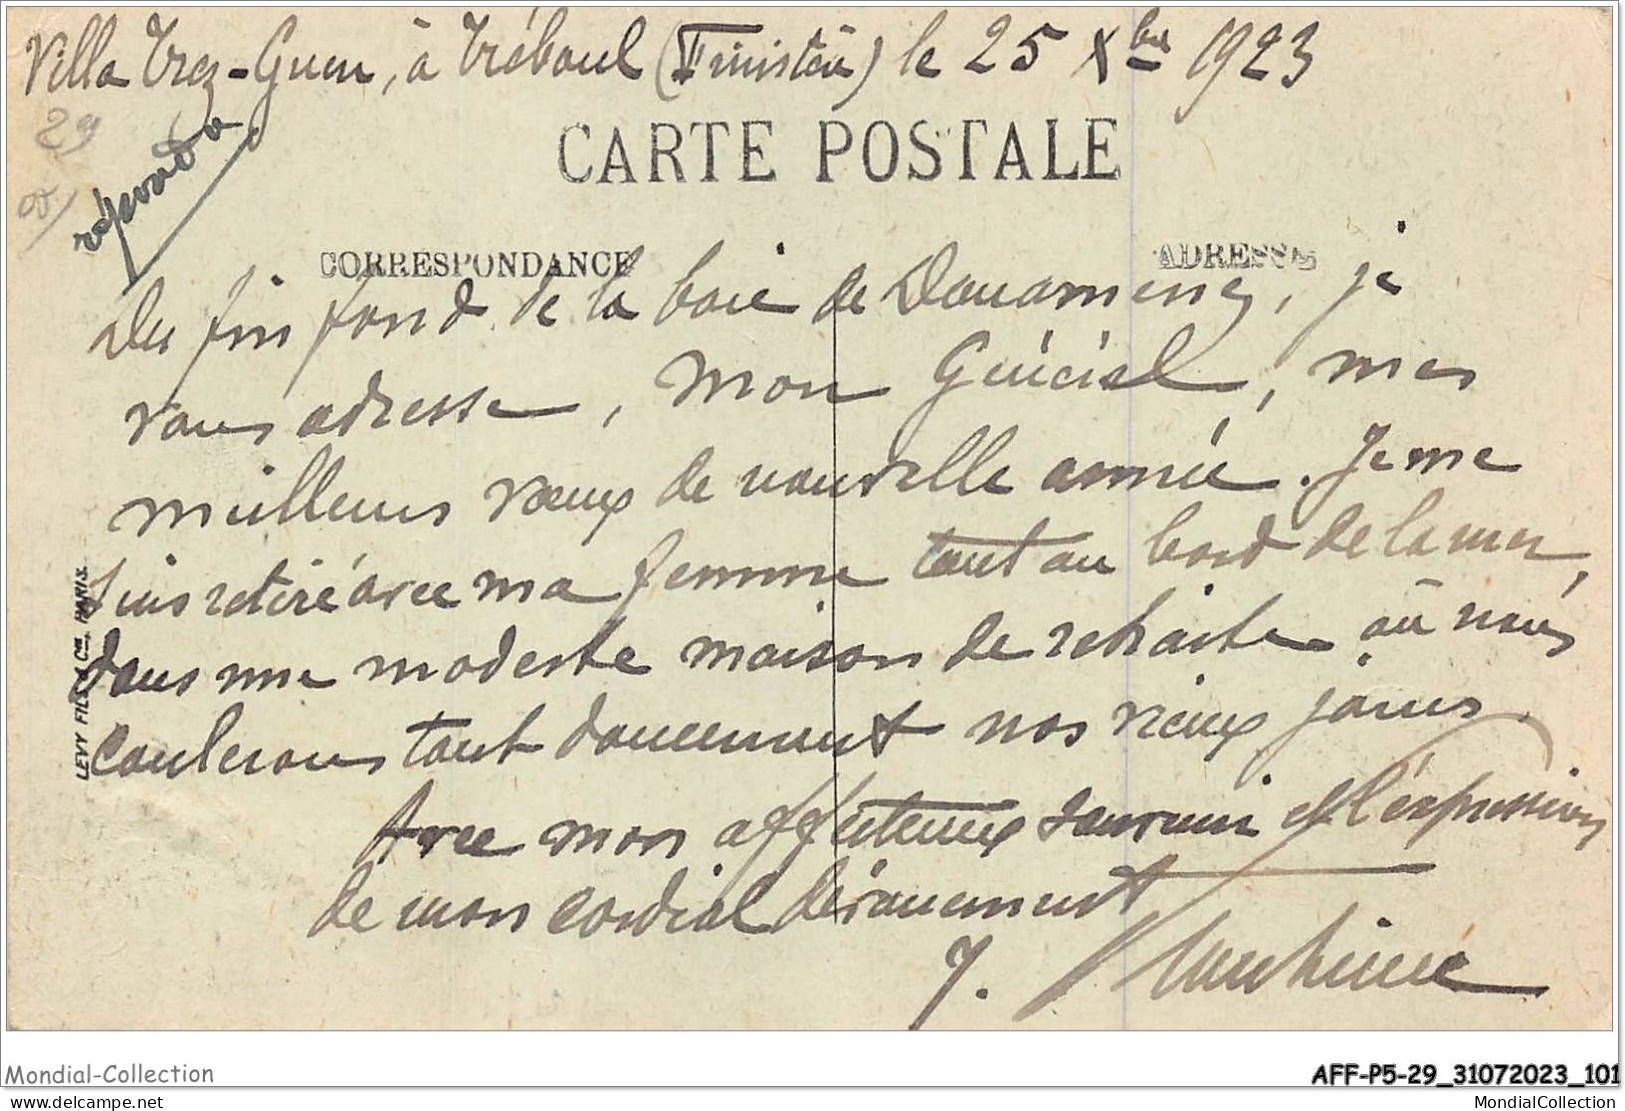 Villa Trez-Guen, à Tréboul (Finistère) le 25 Xbre 1923
29
répondu
CARTE POSTALE
CORRESPONDANCE
ADRESSE
Du fin fond de la baie de Douarnenez, je
vous adresse, mon Général, mes
meilleurs vœux de nouvelle année. Je me
suis retiré avec ma femme tout au bord de la mer,
dans une modeste maison de retraite où nous
coulerons tout doucement nos vieux jours.
Avec mon affectueux souvenir et l'expression
de mon cordial dévouement
J.
LEVY FILS & Cie, PARIS.
Mondial-Collection
AFF-P5-29_31072023_101
delcampe.net
MondialCollection